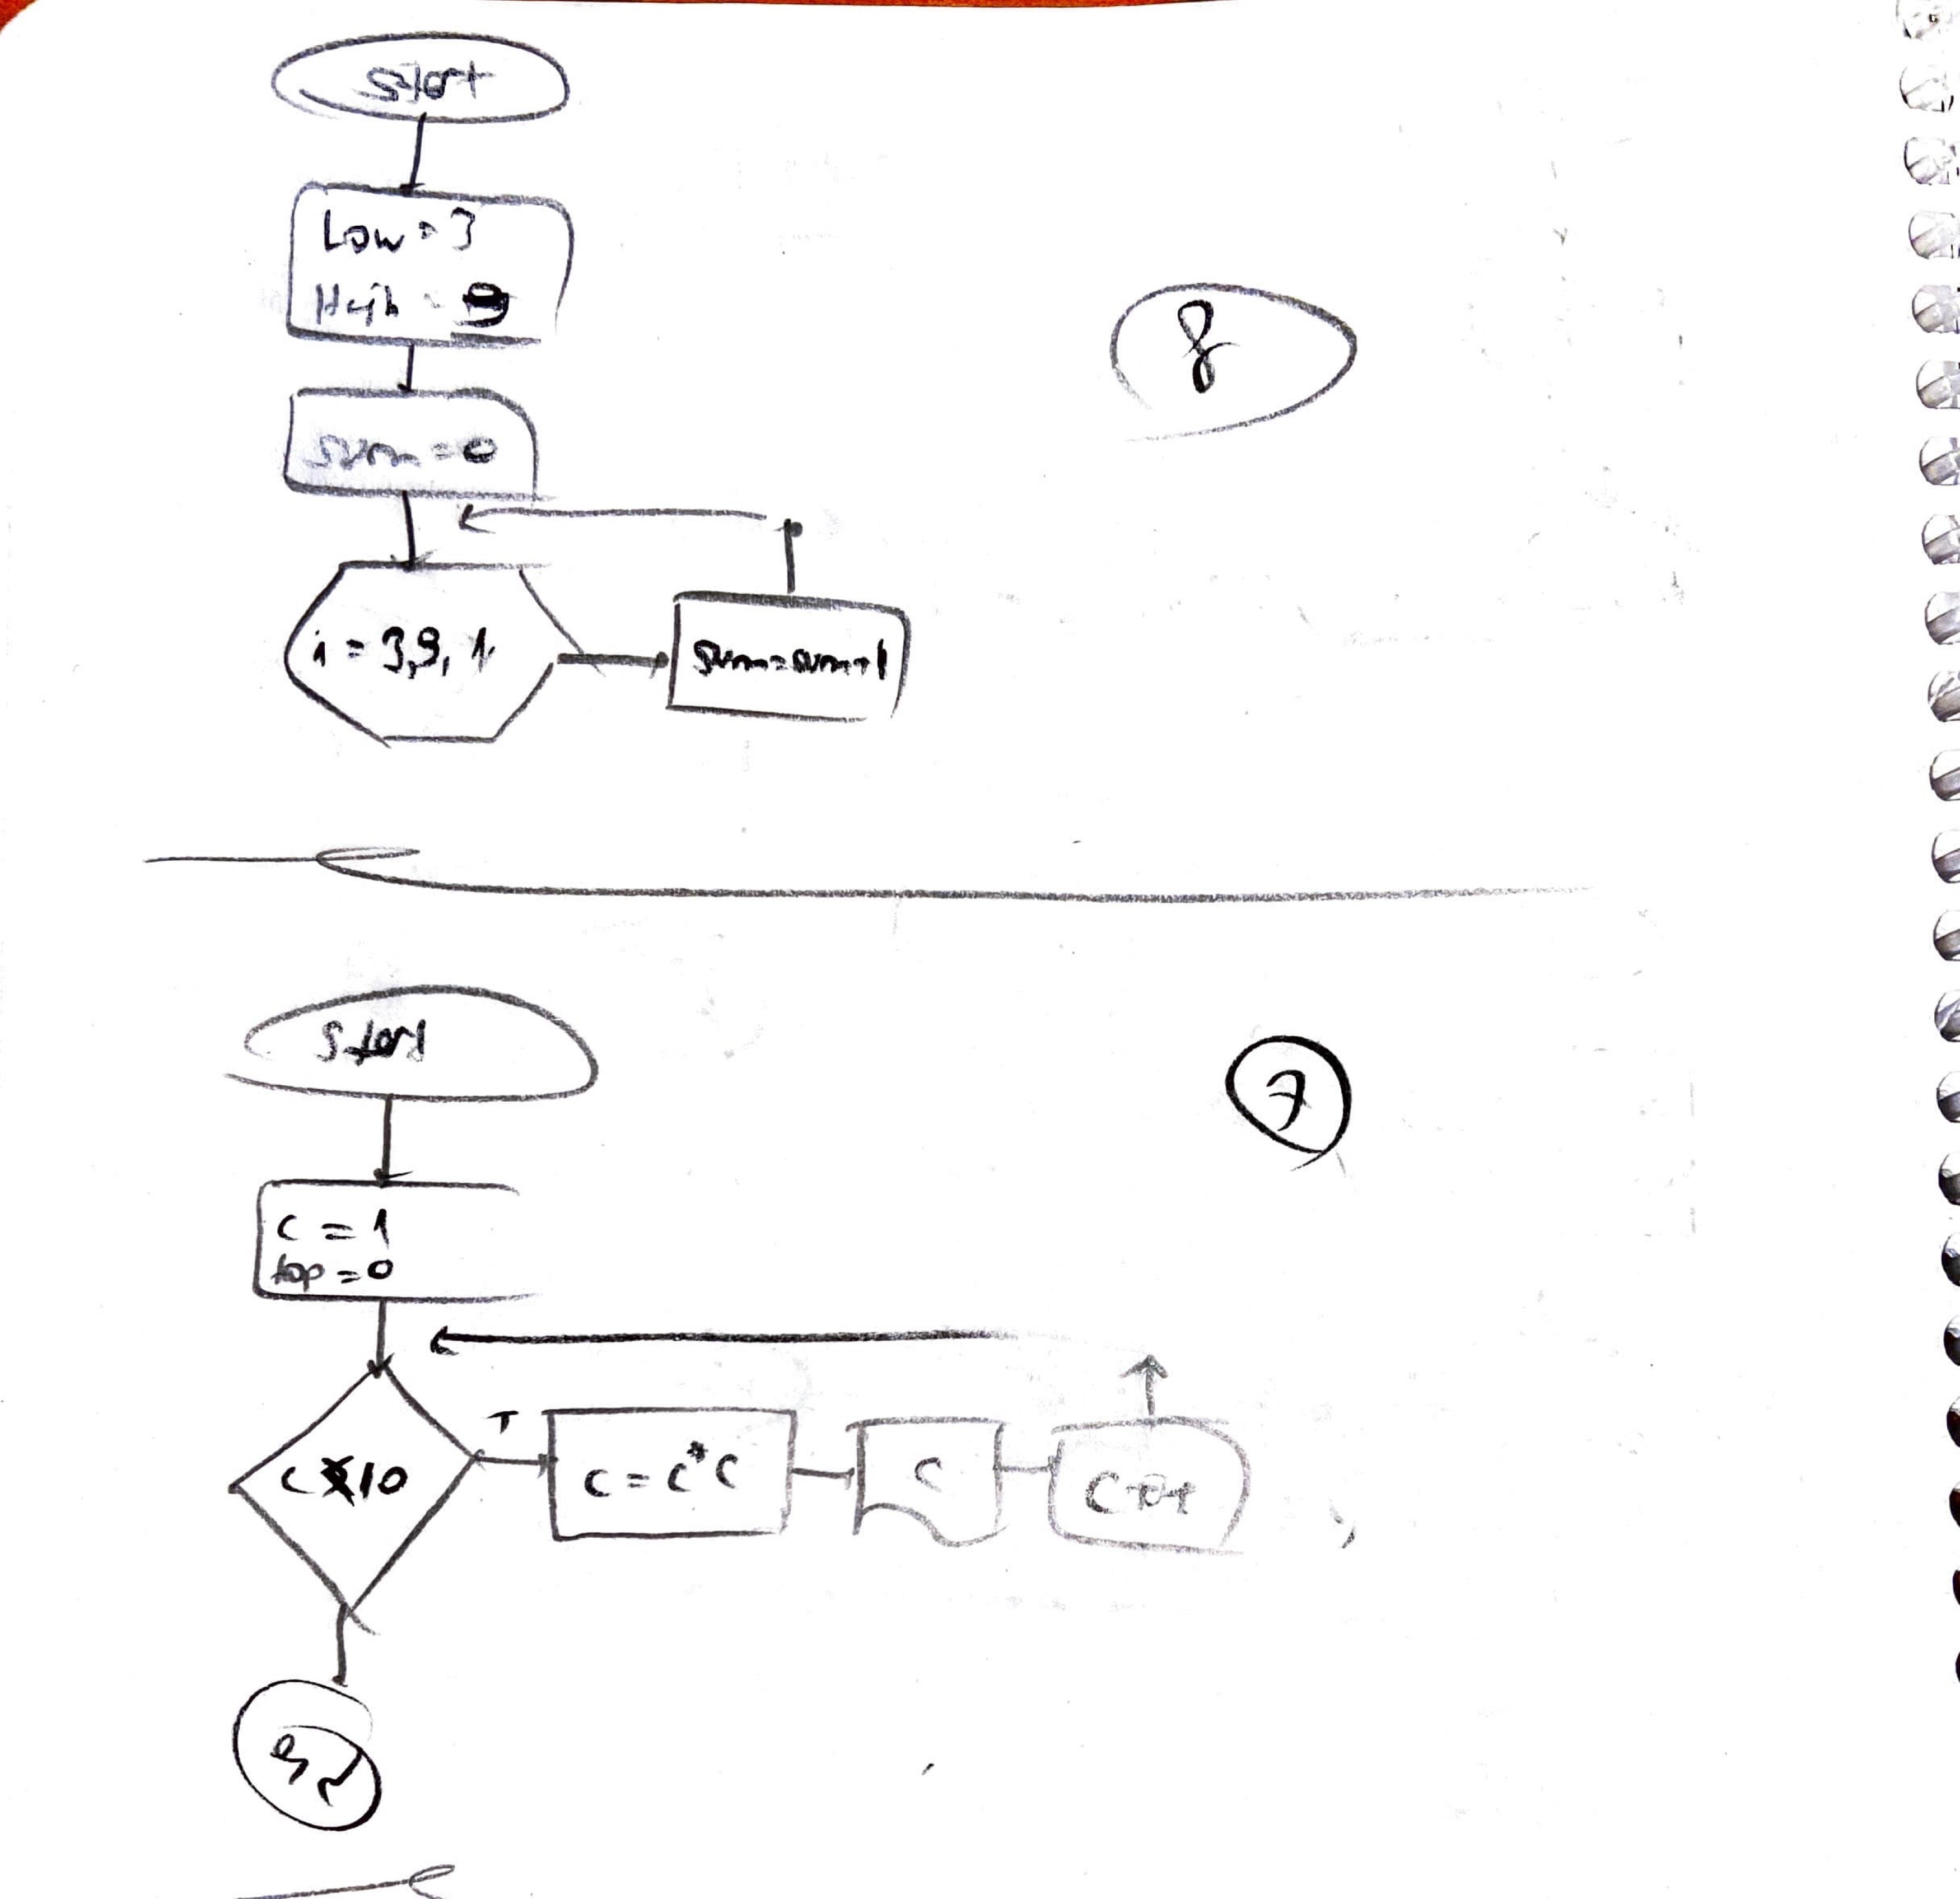 Start
Low = 3
High = 9
8
sum = 0
i = 3,9,1
sum = sum+1
Start
7
C = 1
top = 0
T
C 10
C = C*C
C
C++
End